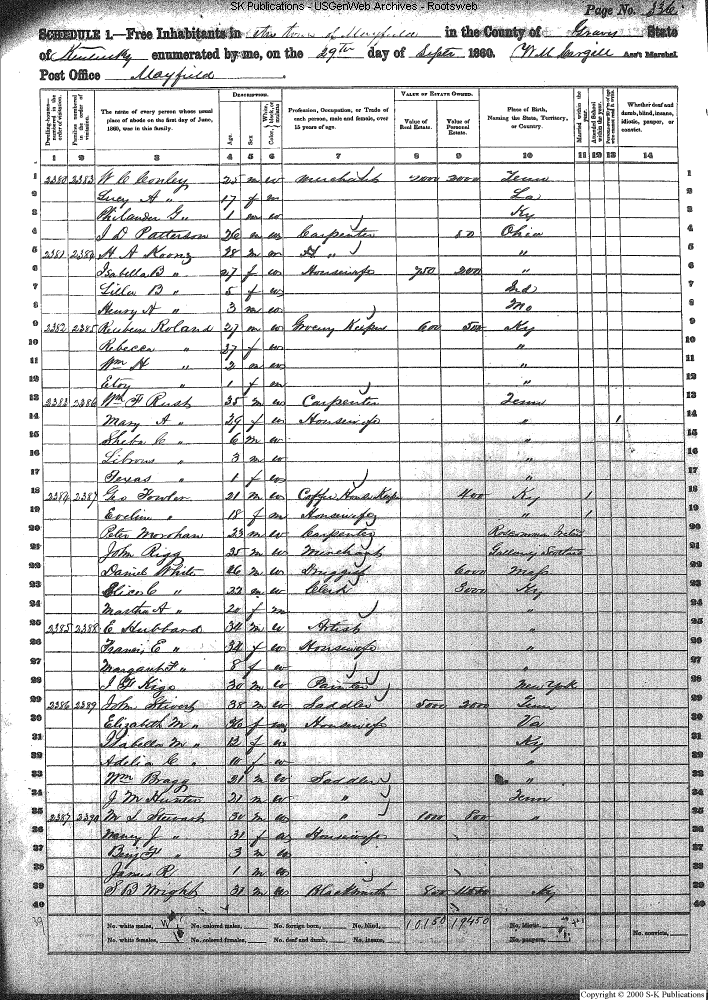 SK Publications - USGenWeb Archives - Rootsweb
Page No. 336
SCHEDULE 1.—Free Inhabitants in the town of Mayfield in the County of Graves State
of Kentucky enumerated by me, on the 29th day of Septr. 1860. Wm Cargill Ass't Marshal.
Post Office Mayfield.
Dwelling-houses— numbered in the order of visitation.
Families numbered in the order of visitation.
The name of every person whose usual place of abode on the first day of June, 1860, was in this family.
DESCRIPTION.
Age.
Sex.
White, black, or mulatto. Color,
Profession, Occupation, or Trade of each person, male and female, over 15 years of age.
VALUE OF ESTATE OWNED.
Value of Real Estate.
Value of Personal Estate.
Place of Birth, Naming the State, Territory, or Country.
Married within the year.
Attended School within the year.
Whether deaf and dumb, blind, insane, idiotic, pauper, or convict.
1 2 3 4 5 6 7 8 9 10 11 12 13 14
1 2380 2383 W C Conley 25 m w merchant 2000 2000 Tenn 1
2 Lucy A " 17 f La 2
3 Philander G " 1 m w Ky 3
4 J D Patterson 26 m w Carpenter 50 Ohio 4
5 2381 2384 H A Koonz 28 m w " " 5
6 Isabella B " 27 f w Housewife 750 200 " 6
7 Lilla B " 5 f w Ind 7
8 Henry A " 3 m w Mo 8
9 2382 2385 Reuben Roland 27 m w Grocery Keeper 600 500 Ky 9
10 Rebecca " 27 f w " 10
11 Wm H " 2 m w " 11
12 " 1 f " 12
13 2383 2386 Wm F Rust 35 m w Carpenter Tenn 13
14 Mary A " 29 f w Housewife " 1 14
15 Sheba C " 6 m w " 15
16 " 3 m w " 16
17 Texas " 1 f w " 17
18 2384 2387 Geo Fowler 21 m w Coffee House Keeper 400 Ky 1 18
19 Eveline " 18 f Housewife " 1 19
20 Peter 23 m w Carpenter 20
21 John Rigg 25 m w Merchant Galloway Scotland 21
22 Daniel White 26 m w Druggist 6000 22
23 C " 22 m w Clerk 3000 Ky 23
24 Martha A " 20 f " 24
25 2385 2388 E Hubbard 34 m w Artist " 25
26 Francis E " 34 f w Housewife " 26
27 Margaret F " 8 f w " 27
28 30 m w Painter New York 28
29 2386 2389 John 38 m w Saddler 5000 2000 Tenn 29
30 Elizabeth M " 36 f Housewife Va 30
31 Isabella M " 12 f w Ky 31
32 Adelia C " 10 f w " 32
33 Wm Bragg 21 m w Saddler " 33
34 J M Hunter 21 m w " Tenn 34
35 2387 2390 M L Stewart 30 m w " 1000 800 " 35
36 Nancy J " 31 f Housewife 36
37 Benj F " 3 m w 37
38 James R " 1 m w 38
39 S B Wright 31 m w Blacksmith 800 Ky 39
40 40
No. white males, No. colored males, No. foreign born, No. blind, 10150 19450 No. idiotic, No. convicts,
No. white females, No. colored females, No. deaf and dumb, No. insane, No. paupers,
Copyright © 2000 S-K Publications